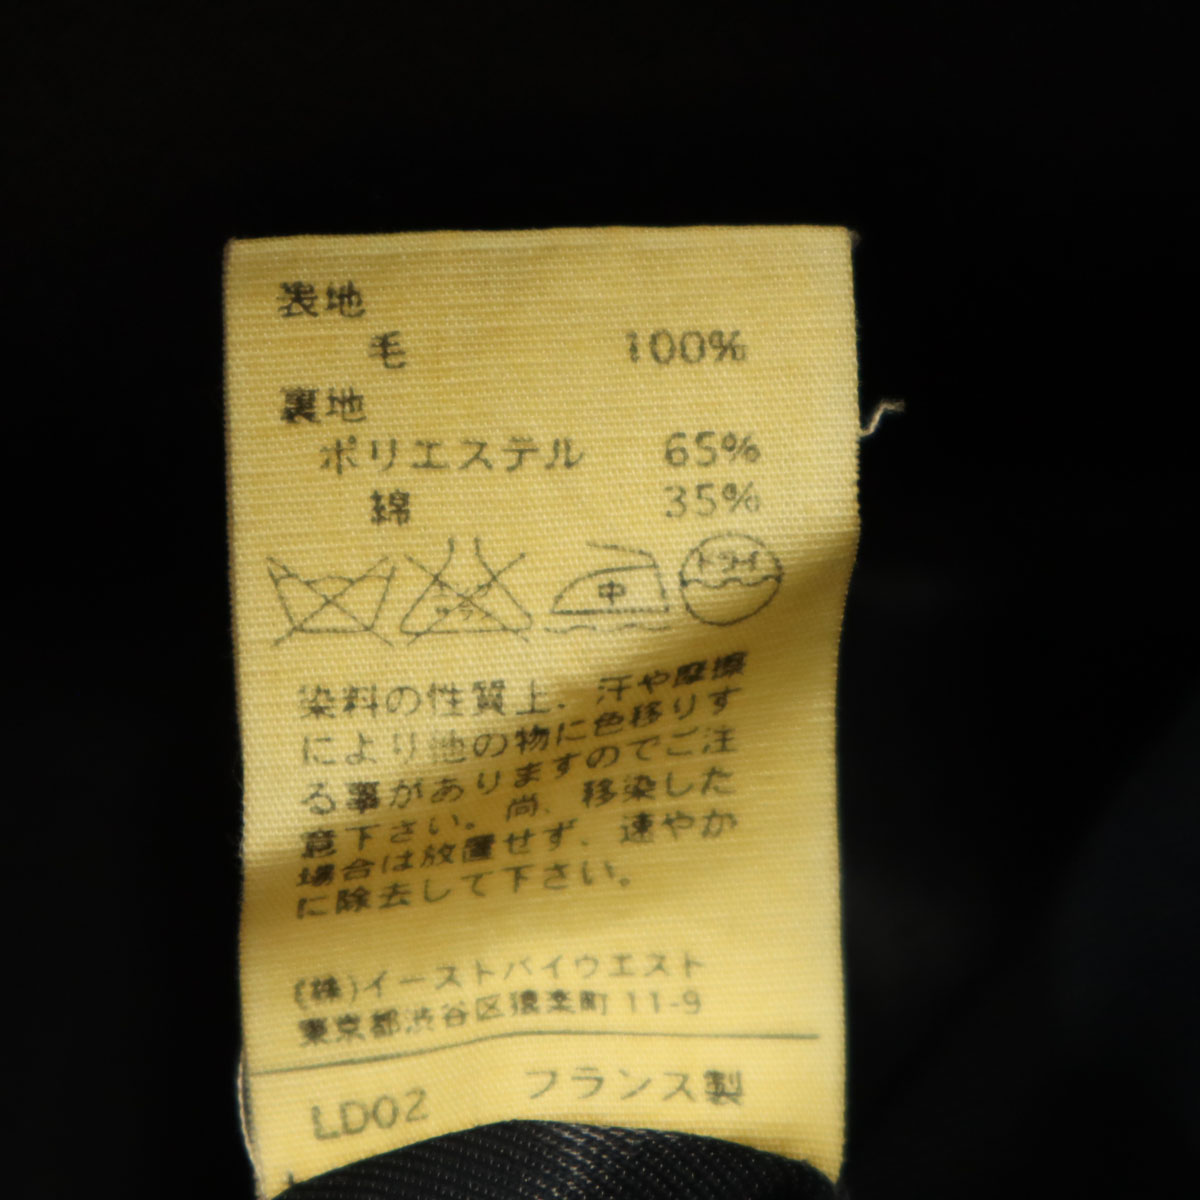 表地
毛 100%
裏地
ポリエステル 65%
綿 35%
中 ドライ
染料の性質上、汗や摩擦
により他の物に色移りす
る事がありますのでご注
意下さい。尚、移染した
場合は放置せず、速やか
に除去して下さい。
(株)イーストバイウエスト
東京都渋谷区猿楽町 11-9
LD02 フランス製